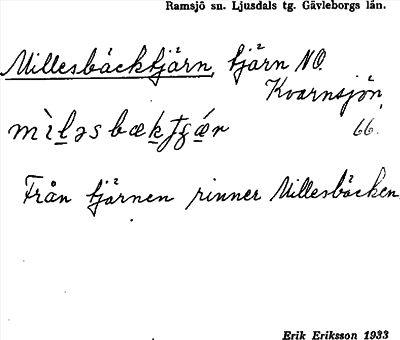 Ramsjö sn. Ljusdals tg. Gävleborgs län.
Millesbäcktjärn, tjärn NO.
Kvarnsjön
66.
Från tjärnen rinner Millesbäcken.
Erik Eriksson 1933